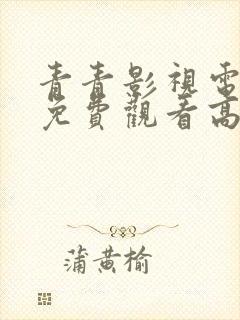 青青影視電
免費觀看高
蒲黄榆